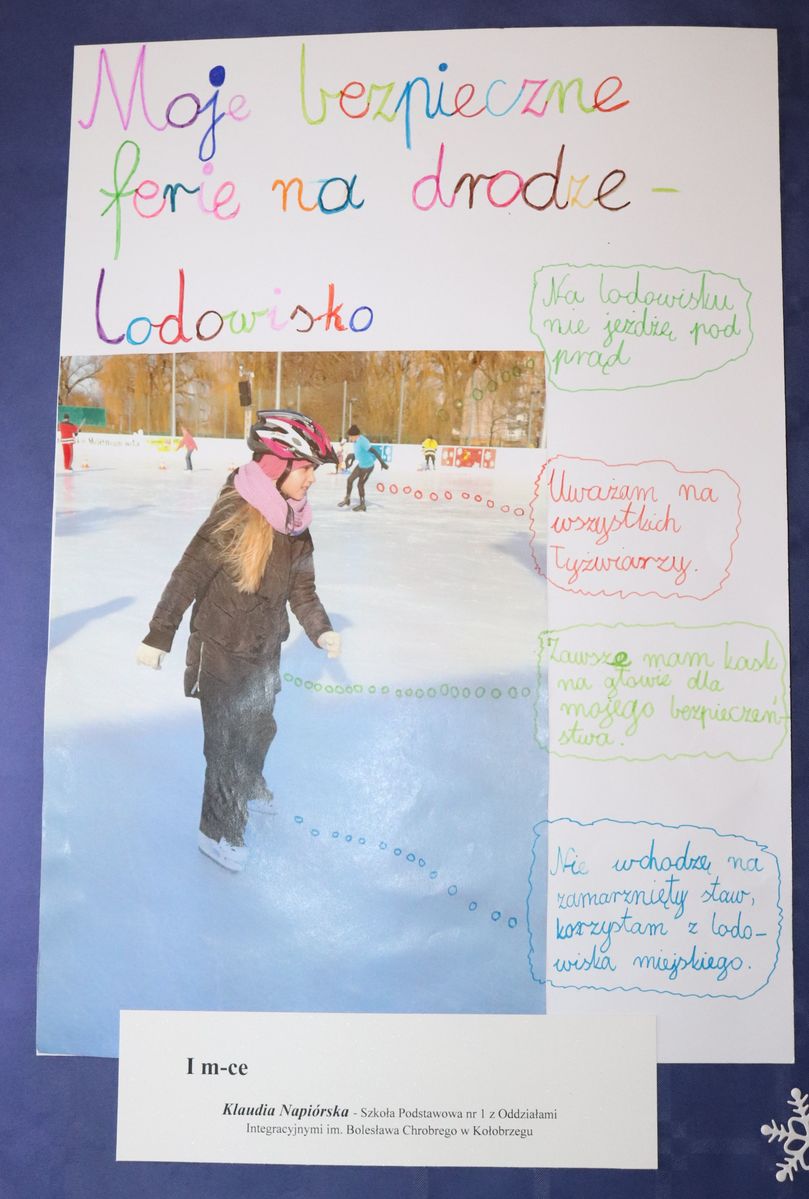 Moje bezpieczne
ferie na drodze -
Lodowisko
Na lodowisku
nie jeżdżę pod
prąd
Uważam na
wszystkich
łyżwiarzy.
Zawsze mam kask
na głowie dla
mojego bezpieczeń-
stwa.
Nie wchodzę na
zamarznięty staw,
korzystam z lodo-
wiska miejskiego.
I m-ce
Klaudia Napiórska - Szkoła Podstawowa nr 1 z Oddziałami
Integracyjnymi im. Bolesława Chrobrego w Kołobrzegu